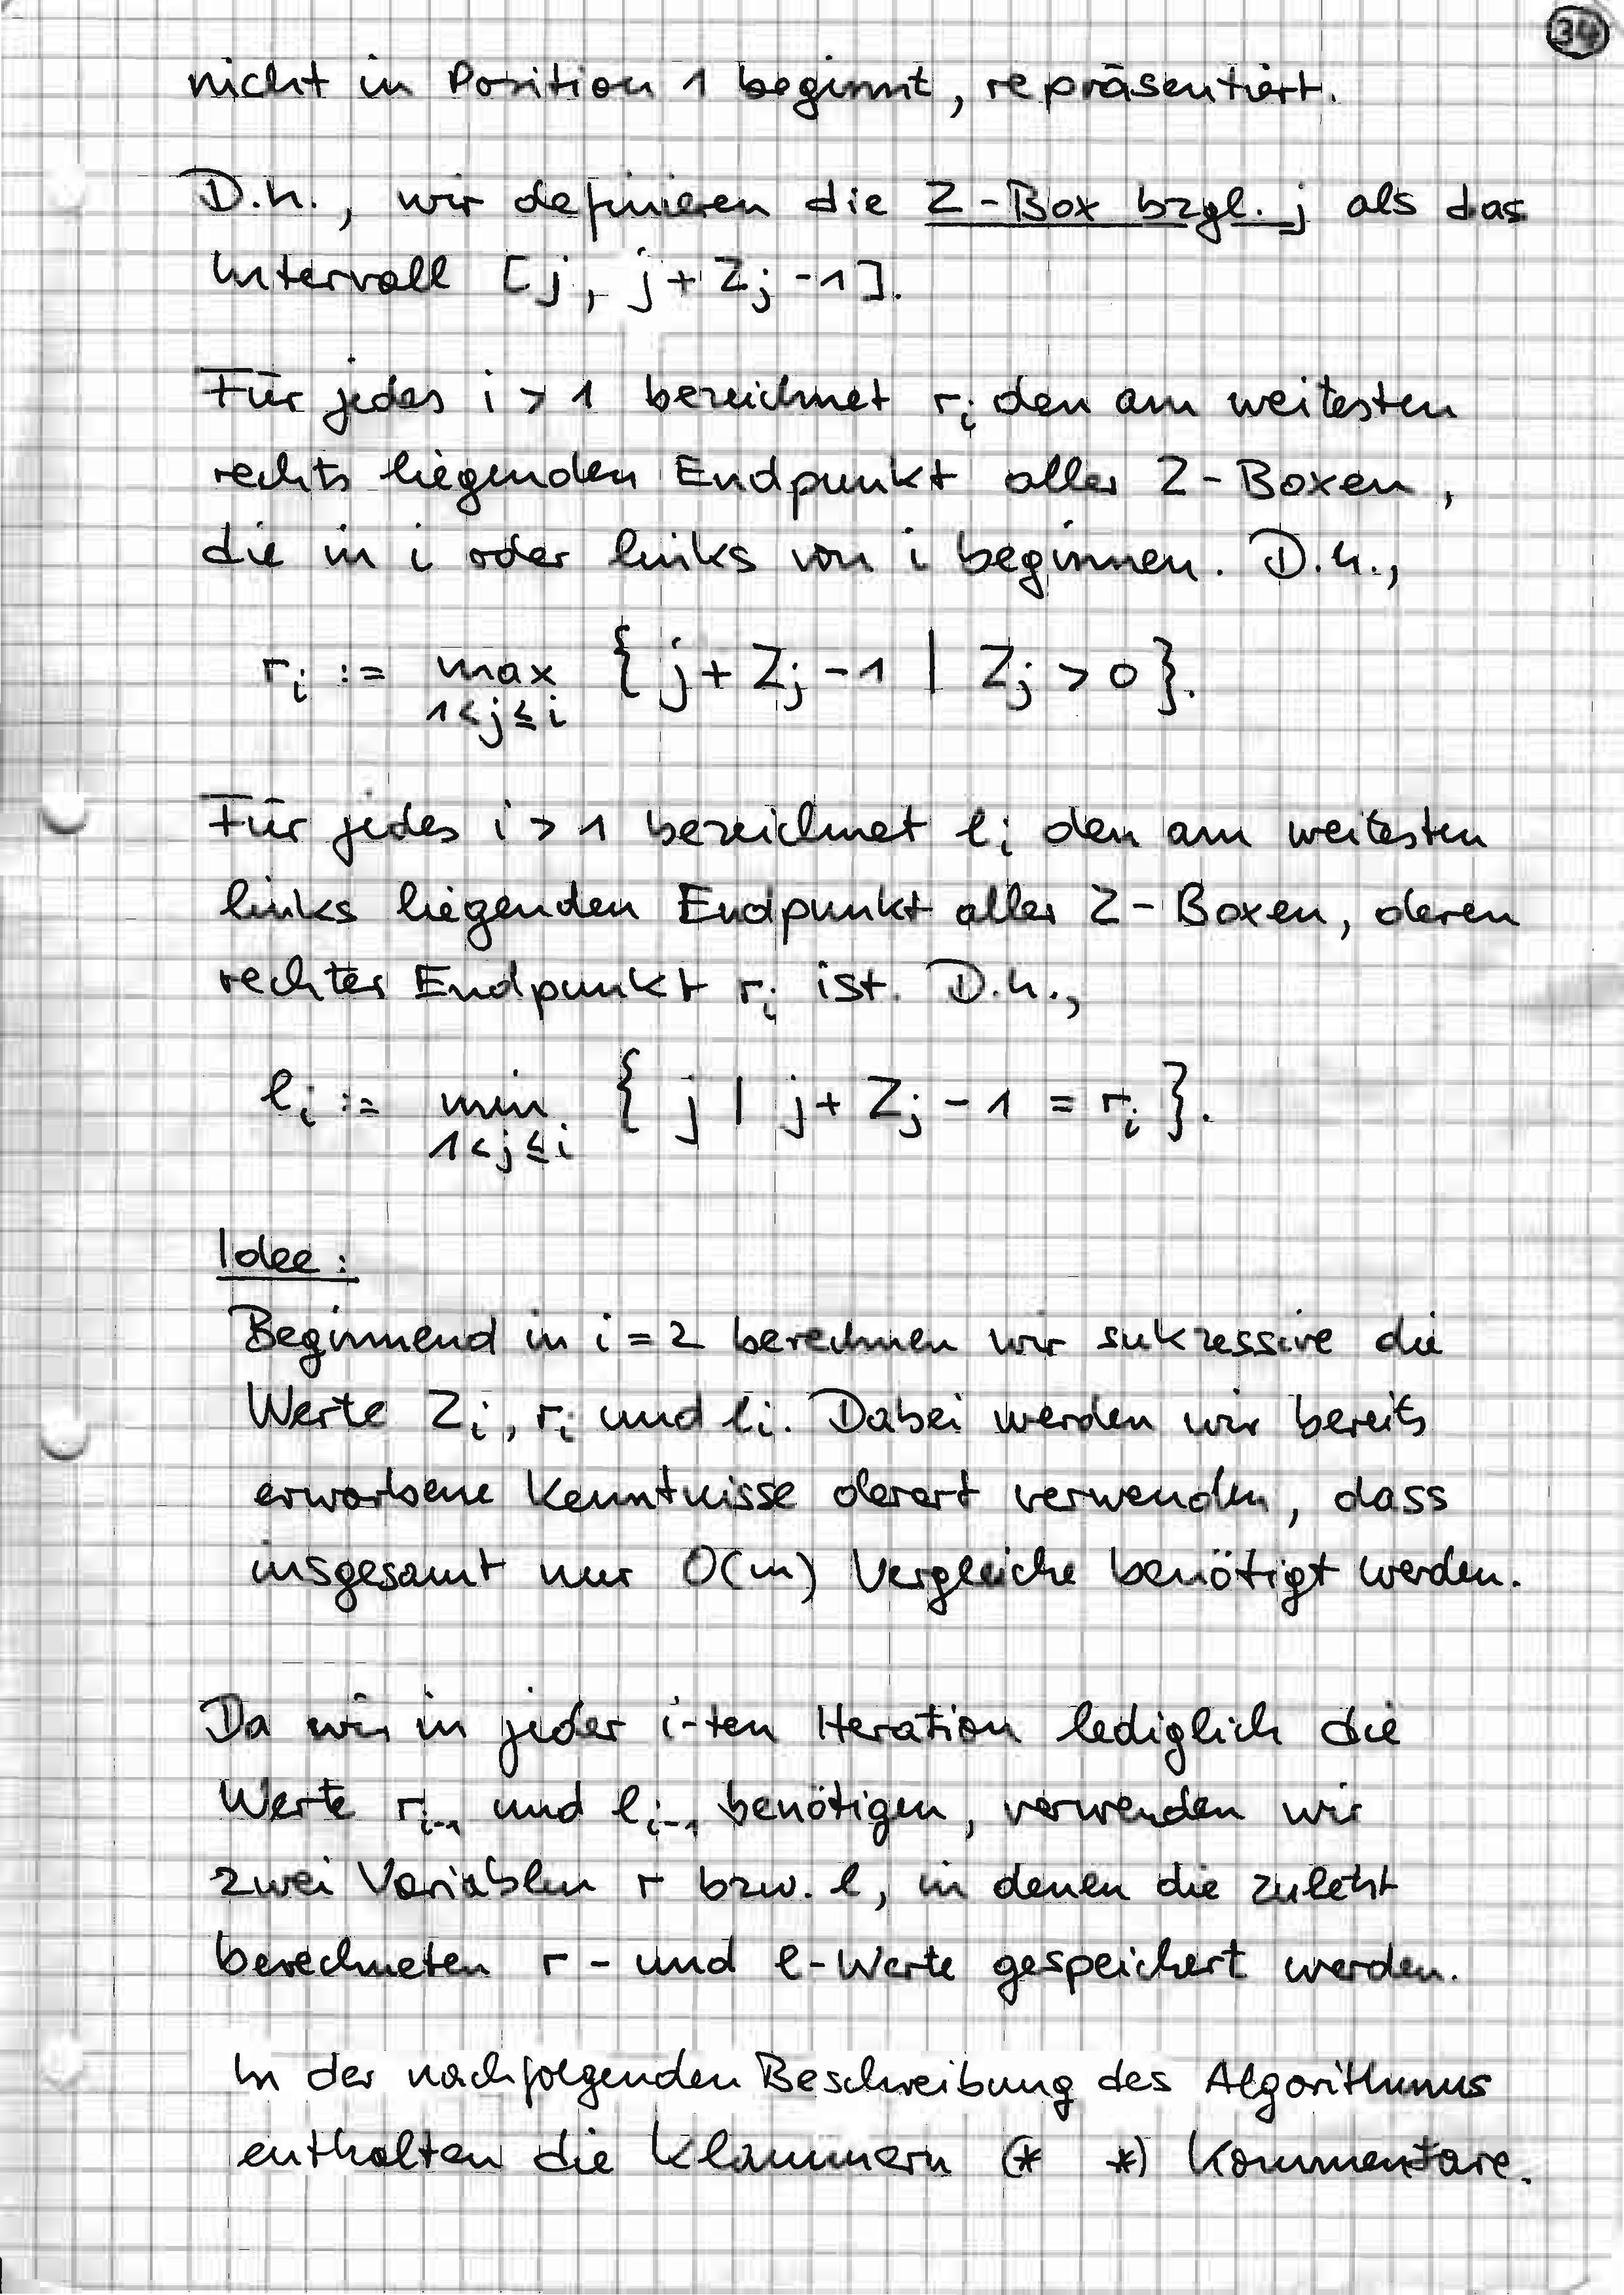 34
nicht in Position 1 beginnt, repräsentiert.
D.h., wir definieren die Z-Box bzgl. j als das
Intervall [j, j+Zj-1].
Für jedes i > 1 bezeichnet ri den am weitesten
rechts liegenden Endpunkt aller Z-Boxen,
die in i oder links von i beginnen. D.h.,
ri := max { j+Zj-1 | Zj > 0 }.
1<j≤i
Für jedes i > 1 bezeichnet li den am weitesten
links liegenden Endpunkt aller Z-Boxen, deren
rechter Endpunkt ri ist. D.h.,
li := min { j | j+Zj-1 = ri }.
1<j≤i
Idee:
Beginnend in i=2 berechnen wir sukzessive die
Werte Zi, ri und li. Dabei werden wir bereits
erworbene Kenntnisse derart verwenden, dass
insgesamt nur O(m) Vergleiche benötigt werden.
Da wir in jeder i-ten Iteration lediglich die
Werte ri-1 und li-1 benötigen, verwenden wir
zwei Variablen r bzw. l, in denen die zuletzt
berechneten r- und l-Werte gespeichert werden.
In der nachfolgenden Beschreibung des Algorithmus
enthalten die Klammern (* *) Kommentare.